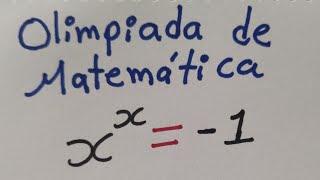 Olimpiada de
Matemática
x^x = -1